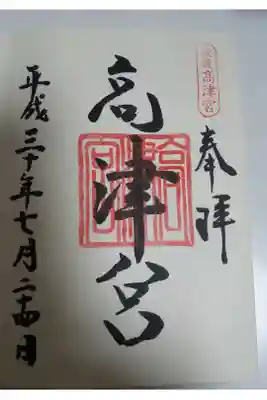 高津宮
奉拝
高津宮
平成三十年七月二十四日